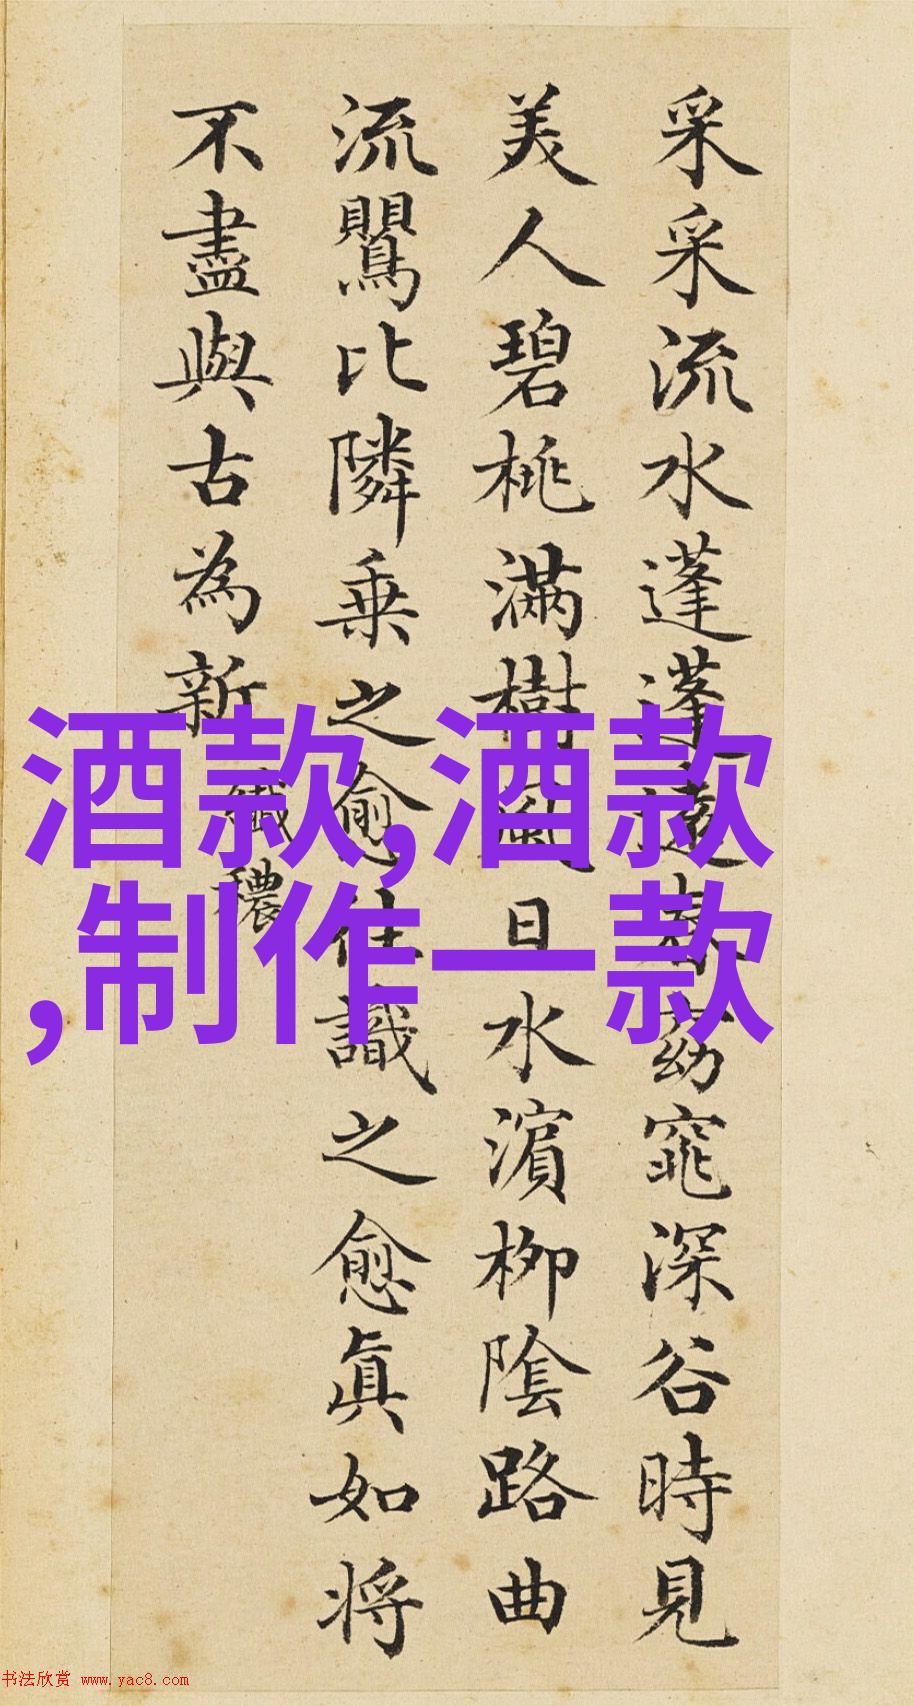 采采流水蓬蓬遠春窈窕深谷時見
美人碧桃滿樹風日水濱柳陰路曲
流鶯比隣乗之愈往識之愈眞如将
不盡與古為新
纖穠
酒款,酒款
,制作一款
书法欣赏 www.yac8.com